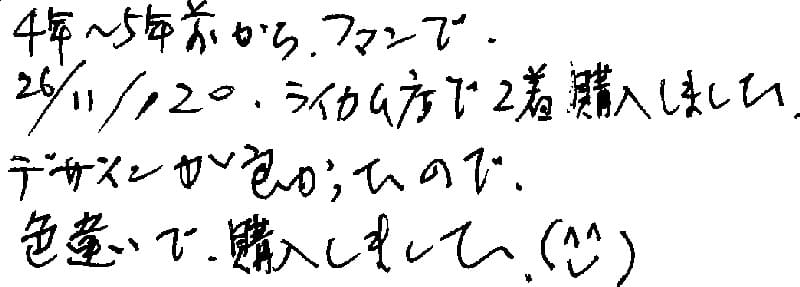 4年~5年前から、ファンで、
26/11/20、ライカム店で2着購入しました、
デザインが良かったので、
色違いで、購入しました、(^^)